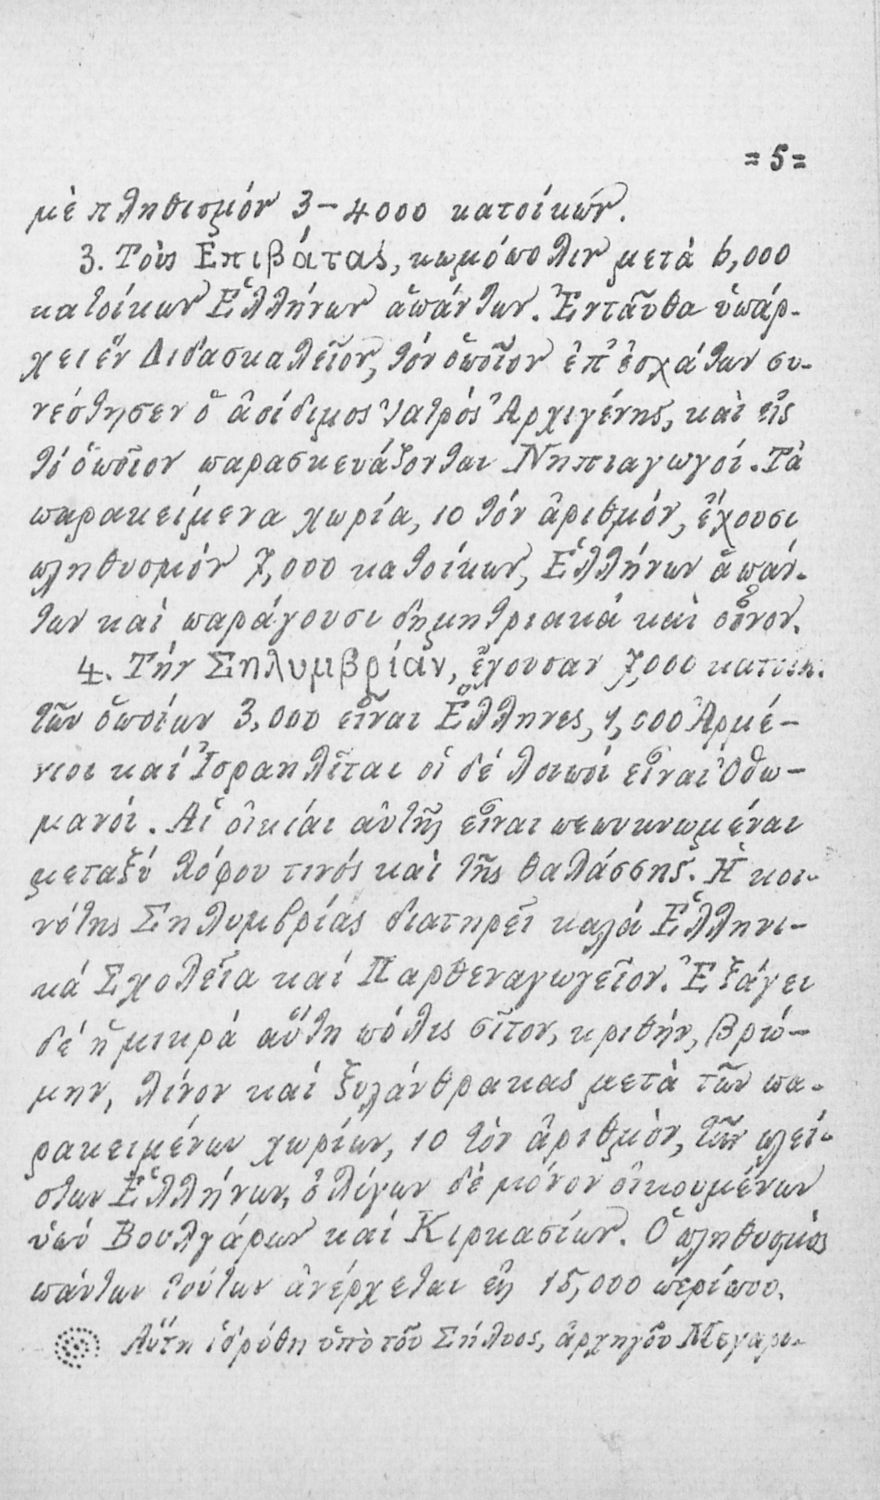 = 5 =
μὲ πληθισμόν 3-4000 κατοίκων.
3. Τοὺς Ἐπιβάτας, κωμόπολιν μετὰ 6,000
κατοίκων Ἑλλήνων ἁπάντων. Ἐνταῦθα ὑπάρ-
χει ἕν Διδασκαλεῖον, τόν ὁποῖον ἐπ' ἐσχάτων συ-
νέστησεν ὁ ἀείδιμος Ἰατρός Ἀρχιγένης, καὶ εἰς
τό ὁποῖον παρασκευάζονται Νηπιαγωγοί. Τὰ
παρακείμενα χωρία, 10 τόν ἀριθμόν, ἔχουσι
πληθυσμόν 7,000 κατοίκων, Ἑλλήνων ἁπάν-
των καὶ παράγουσι δημητριακά καὶ οἶνον.
4. Τήν Σηλυμβρίαν, ἔχουσαν 7,000 κατοικ.
τῶν ὁποίων 3,000 εἶναι Ἕλληνες, 1,000 Ἀρμέ-
νιοι καί Ἰσραηλῖται οἱ δέ λοιποί εἶναι Ὀθω-
μανοί. Αἱ οἰκίαι αὐτῆς εἶναι πεπυκνωμέναι
μεταξύ λόφου τινός καὶ τῆς θαλάσσης. Ἡ κοι-
νότης Σηλυμβρίας διατηρεῖ καλά Ἑλληνι-
κά Σχολεῖα καί Παρθεναγωγεῖον. Ἐξάγει
δέ ἡ μικρά αὕτη πόλις σῖτον, κριθήν, βρώ-
μην, λίνον καί ξυλάνθρακας μετὰ τῶν πα-
ρακειμένων χωρίων, 10 τὸν ἀριθμὸν, τῶν πλεί-
στων Ἑλλήνων, ὀλίγων δὲ μόνον οἰκουμένων
ὑπό Βουλγάρων καί Κιρκασίων. Ὁ πληθυσμὸς
πάντων τούτων ἀνέρχεται εἰς 15,000 περίπου.
Αὕτη ἱδρύθη ὑπὸ τοῦ Σήλυος, ἀρχηγοῦ Μεγαρέ-